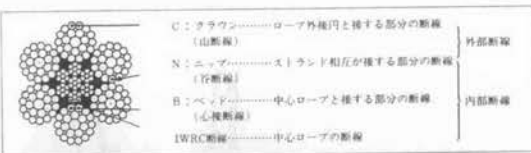 C：クラウン………ロープ外接円と接する部分の断線
（山断線）
N：ニップ………ストランド相互が接する部分の断線
（谷断線）
外部断線
B：ベッド………中心ロープと接する部分の断線
（心接断線）
内部断線
IWRC断線………中心ロープの断線